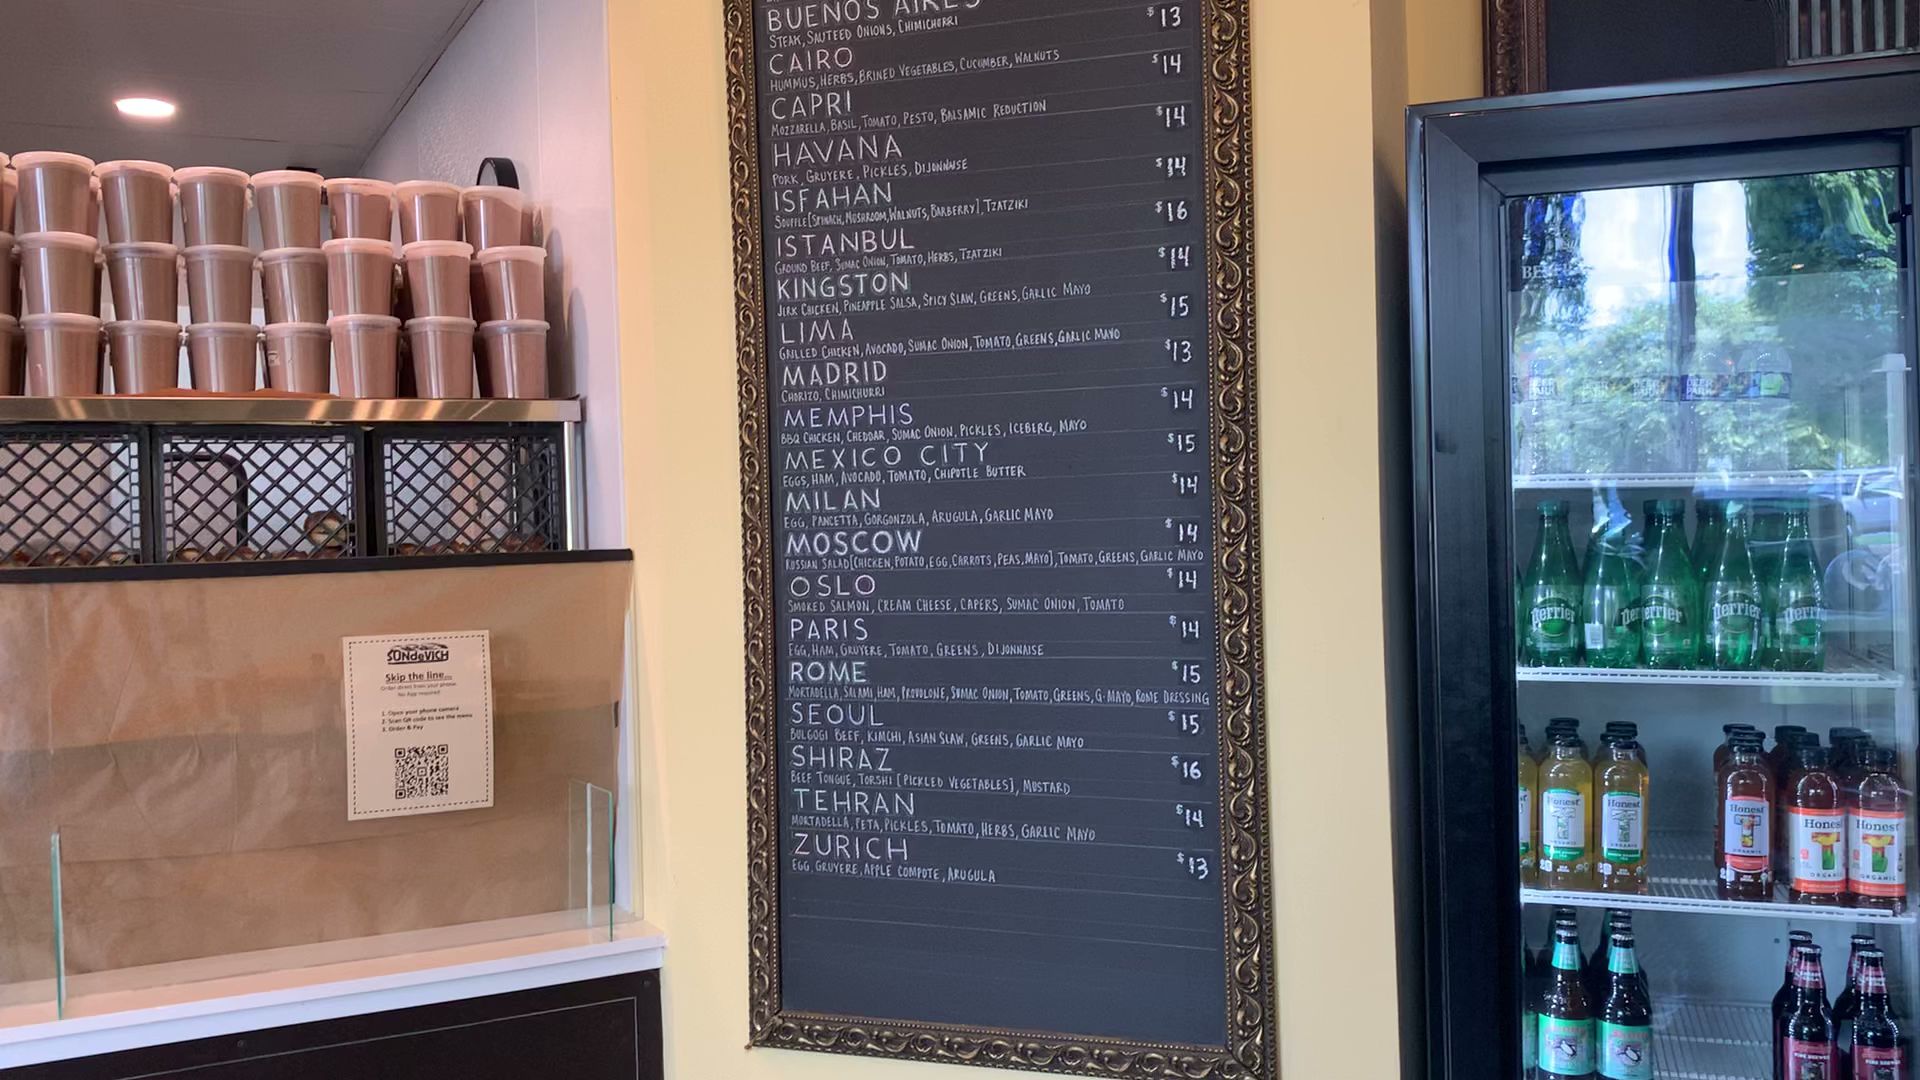 BUENOS AIRES $13
STEAK, SAUTEED ONIONS, CHIMICHURRI
CAIRO $14
HUMMUS, HERBS, BRINED VEGETABLES, CUCUMBER, WALNUTS
CAPRI $14
MOZZARELLA, BASIL, TOMATO, PESTO, BALSAMIC REDUCTION
HAVANA $14
PORK, GRUYERE, PICKLES, DIJONNAISE
ISFAHAN $16
SOUFFLE [SPINACH, MUSHROOM, WALNUTS, BARBERRY], TZATZIKI
ISTANBUL $14
GROUND BEEF, SUMAC ONION, TOMATO, HERBS, TZATZIKI
KINGSTON $15
JERK CHICKEN, PINEAPPLE SALSA, SPICY SLAW, GREENS, GARLIC MAYO
LIMA $13
GRILLED CHICKEN, AVOCADO, SUMAC ONION, TOMATO, GREENS, GARLIC MAYO
MADRID $14
CHORIZO, CHIMICHURRI
MEMPHIS $15
BBQ CHICKEN, CHEDDAR, SUMAC ONION, PICKLES, ICEBERG, MAYO
MEXICO CITY $14
EGGS, HAM, AVOCADO, TOMATO, CHIPOTLE BUTTER
MILAN $14
EGG, PANCETTA, GORGONZOLA, ARUGULA, GARLIC MAYO
MOSCOW $14
RUSSIAN SALAD [CHICKEN, POTATO, EGG, CARROTS, PEAS, MAYO], TOMATO, GREENS, GARLIC MAYO
OSLO $14
SMOKED SALMON, CREAM CHEESE, CAPERS, SUMAC ONION, TOMATO
PARIS $15
EGG, HAM, GRUYERE, TOMATO, GREENS, DIJONNAISE
ROME $15
MORTADELLA, SALAMI, HAM, PROVOLONE, SUMAC ONION, TOMATO, GREENS, G. MAYO, ROME DRESSING
SEOUL $16
BULGOGI BEEF, KIMCHI, ASIAN SLAW, GREENS, GARLIC MAYO
SHIRAZ $14
BEEF TONGUE, TORSHI [PICKLED VEGETABLES], MUSTARD
TEHRAN $13
MORTADELLA, FETA, PICKLES, TOMATO, HERBS, GARLIC MAYO
ZURICH
EGG, GRUYERE, APPLE COMPOTE, ARUGULA
SUNdeVICH
Skip the line...
Order direct from your phone.
No App required!
1. Open your phone camera
2. Scan QR code to see the menu
3. Order & Pay
DEER PARK
Perrier
Perrier
Perrier
Perrier
Honest
Honest
Honest
ORGANIC
Honest
ORGANIC
Honest
ORGANIC